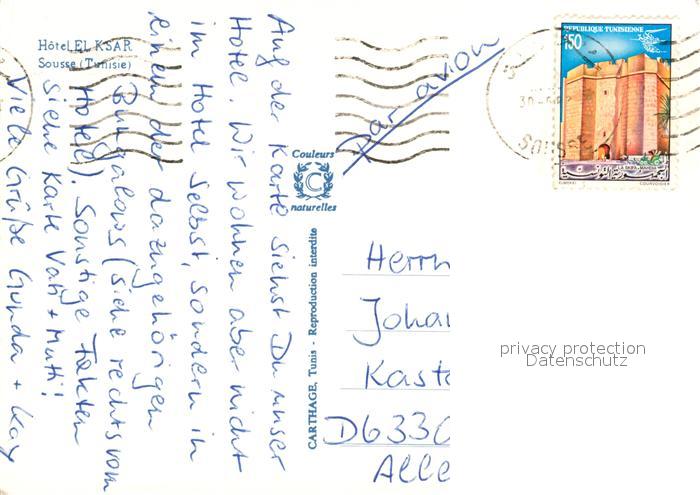 Hôtel EL KSAR
Sousse (Tunisie)
Auf der Karte siehst Du unser
Hotel. Wir wohnen aber nicht
im Hotel selbst, sondern in
einem der dazugehörigen
Bungalows (siehe rechts vom
Hotel). Sonstige Fakten
siehe Karte Vati + Mutti!
Viele Grüße Gunda + Kay
Par avion
Couleurs
C
naturelles
CARTHAGE, Tunis - Reproduction interdite
REPUBLIQUE TUNISIENNE
150
COURVOISIER
SOUSSE
Herrn
Johan
Kaste
D6330
Alle
privacy protection
Datenschutz